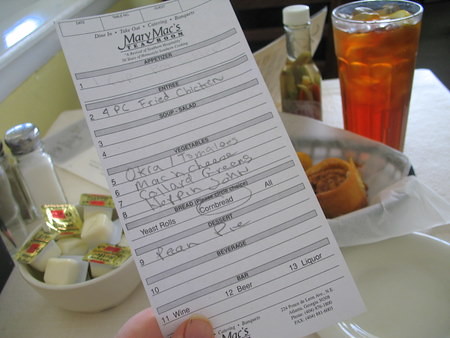 Dine In • Take Out • Catering • Banquets
Mary Mac's
TEA ROOM
APPETIZER
1
ENTREE
2 4 PC Fried Chicken
SOUP - SALAD
3
4
VEGETABLES
5 Okra / Tomatoes
6 Mac n cheese
7 Collard Greens
8 Hoppin John
BREAD (Please circle choice)
Yeast Rolls Cornbread All
DESSERT
9 Pecan Pie
BEVERAGE
10
BAR
11 Wine 12 Beer 13 Liquor
224 Ponce de Leon Ave., N.E.
Atlanta, Georgia 30308
Catering • Banquets
Mac's